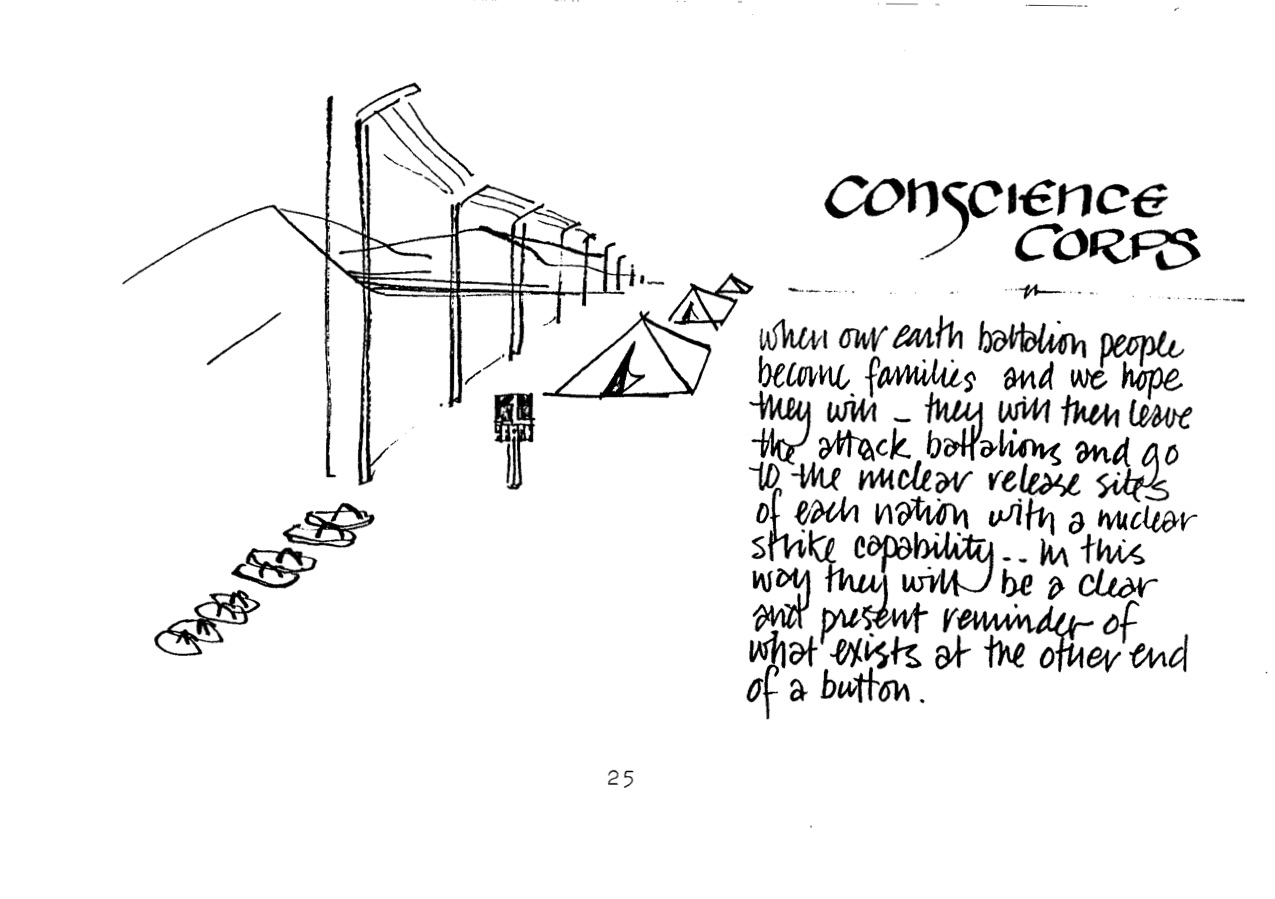 CONSCIENCE
CORPS
when our earth battalion people
become families and we hope
they will – they will then leave
the attack battalions and go
to the nuclear release sites
of each nation with a nuclear
strike capability.. in this
way they will be a clear
and present reminder of
what exists at the other end
of a button.
25